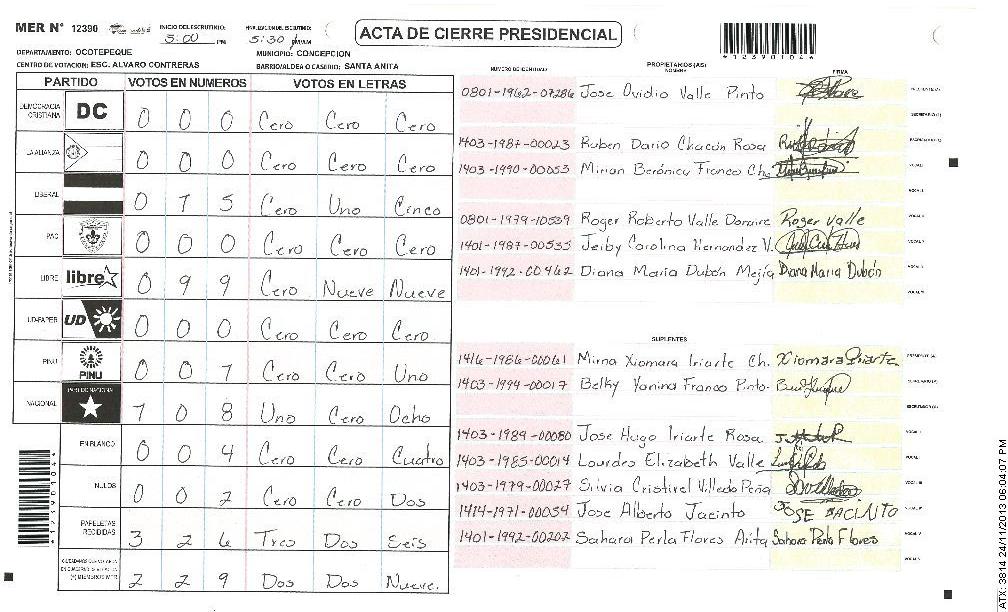 MER N° 12390
INICIO DEL ESCRUTINIO:
5:00 PM
5:30
ACTA DE CIERRE PRESIDENCIAL
*12390104*
DEPARTAMENTO: OCOTEPEQUE
MUNICIPIO: CONCEPCION
CENTRO DE VOTACION: ESC. ALVARO CONTRERAS
BARRIO/ALDEA O CASERIO: SANTA ANITA
PARTIDO VOTOS EN NUMEROS VOTOS EN LETRAS
DEMOCRACIA CRISTIANA DC 0 0 0 Cero Cero Cero
LA ALIANZA 0 0 0 Cero Cero Cero
LIBERAL 0 1 5 Cero Uno Cinco
PAC 0 0 0 Cero Cero Cero
LIBRE libre 0 9 9 Cero Nueve Nueve
UD-FAPER UD 0 0 0 Cero Cero Cero
PINU PINU 0 0 1 Cero Cero Uno
NACIONAL PARTIDO NACIONAL 1 0 8 Uno Cero Ocho
EN BLANCO 0 0 4 Cero Cero Cuatro
NULOS 0 0 2 Cero Cero Dos
PAPELETAS RECIBIDAS 3 2 6 Tres Dos Seis
2 2 9 Dos Dos Nueve.
*12390104*
NUMERO DE IDENTIDAD PROPIETARIOS (AS) NOMBRE FIRMA
0801-1962-07286 Jose Ovidio Valle Pinto
1403-1987-00023 Ruben Dario Chacón Rosa
1403-1990-00053 Mirian Berónica Franco Ch.
0801-1979-10539 Roger Roberto Valle Roger Valle
1401-1987-00535 Jeiby Carolina Hernandez V.
1401-1992-00462 Diana Maria Dubón Mejía Diana Maria Dubón
SUPLENTES
1416-1986-00061 Mirna Xiomara Iriarte Ch. Xiomara Iriarte
1403-1994-00017 Belky Yanina Franco Pinto.
1403-1989-00080 Jose Hugo Iriarte Rosa
1403-1985-00014 Lourdes Elizabeth Valle
1403-1979-00027 Silvia Cristivel Villeda Peña
1414-1971-00054 Jose Alberto Jacinto JOSE JACINTO
1401-1992-00202 Sahara Perla Flores Arita Sahara Perla Flores
ATX: 3814 24/11/2013 06:04:07 PM